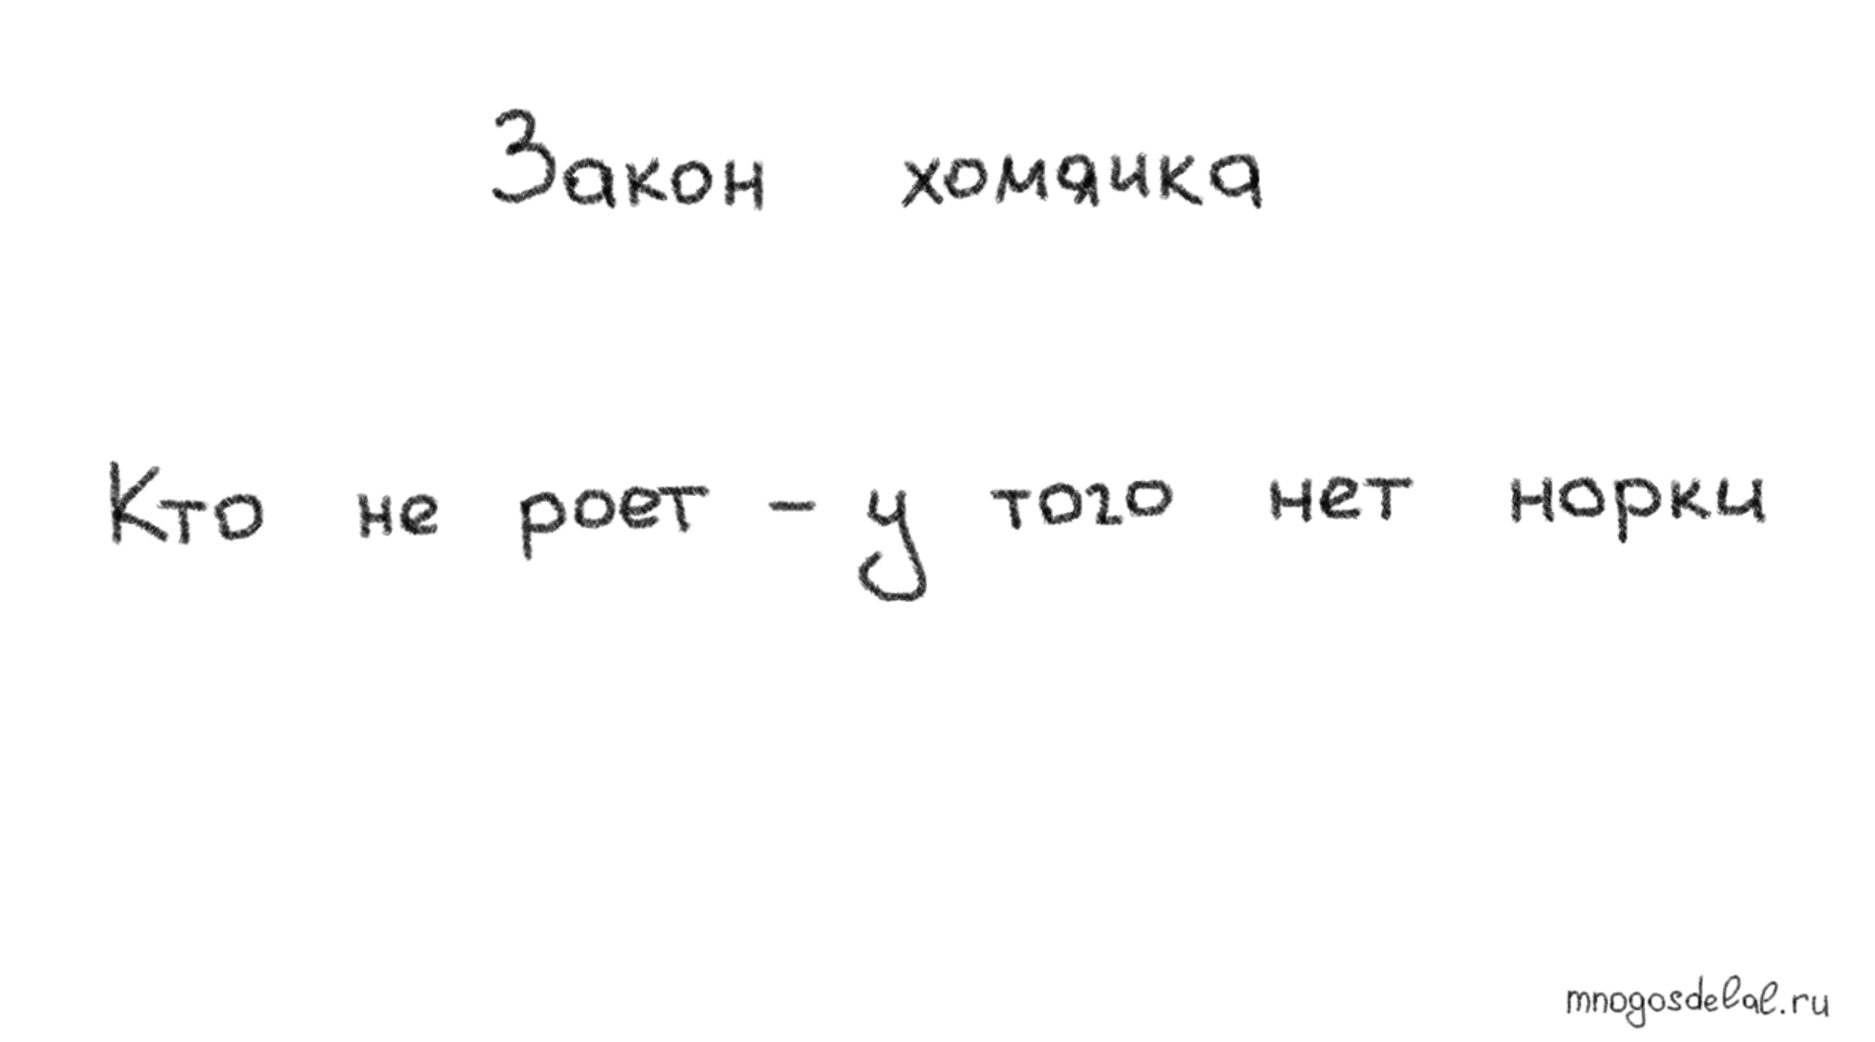 Закон хомячка
Кто не роет - у того нет норки
mnogosdelal.ru